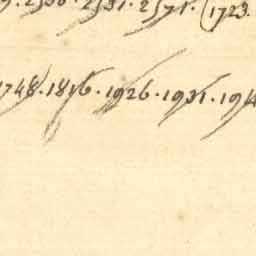 2530. 2531. 2571. (1723.
1748. 1816. 1926. 1931. 194